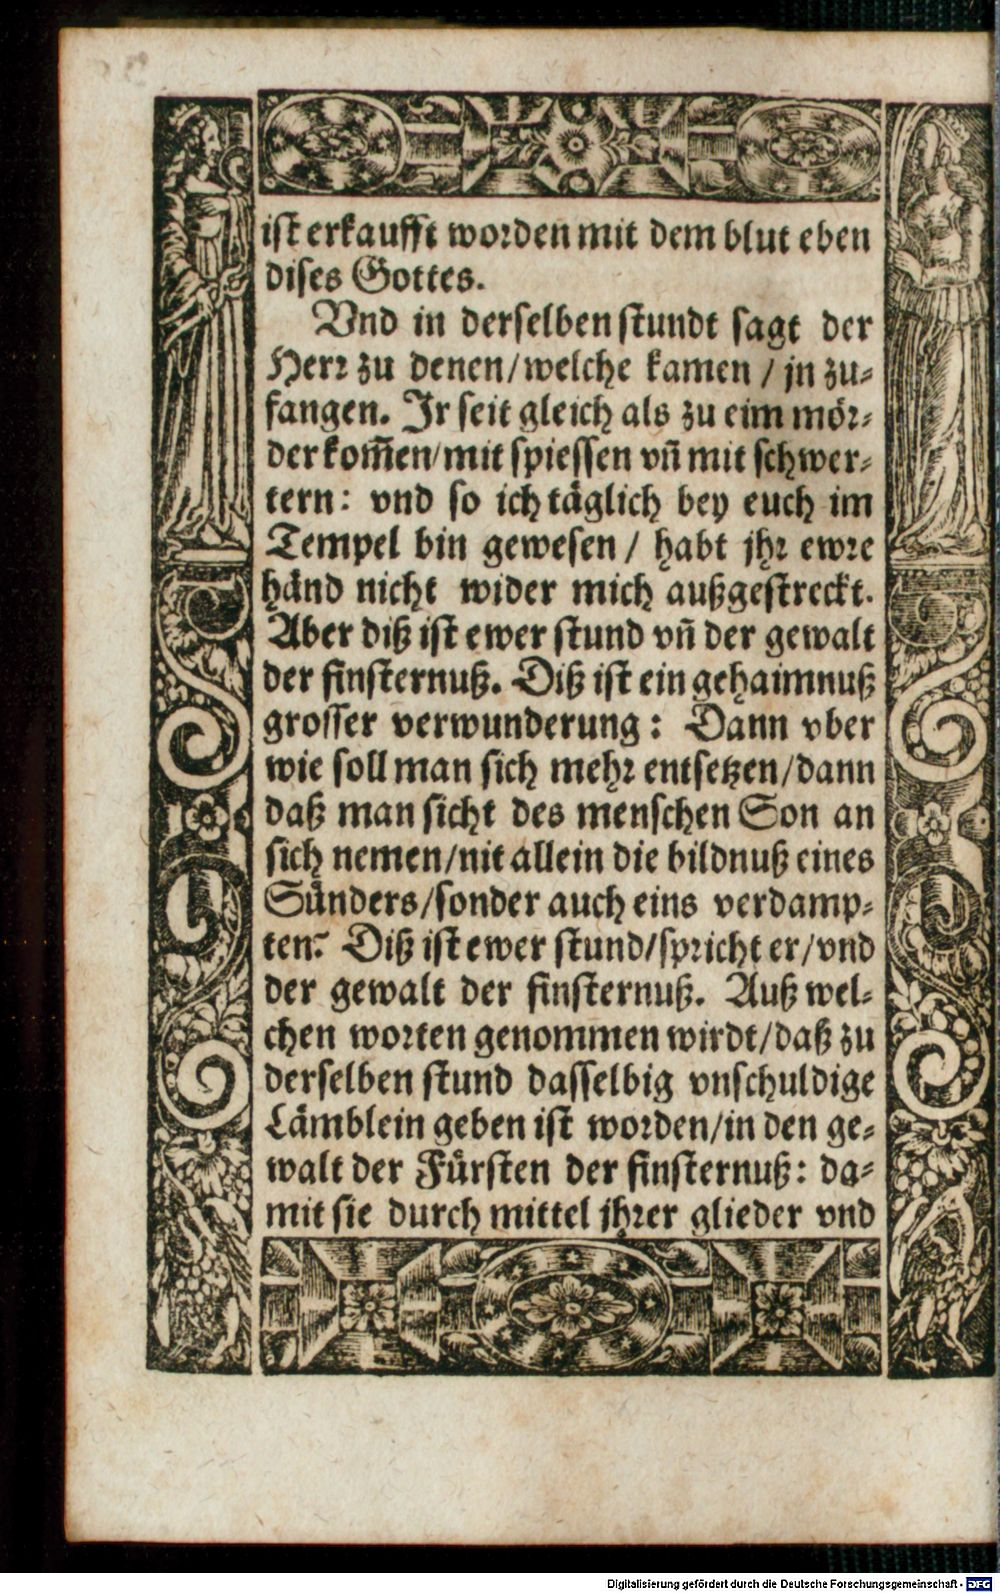 ist erkaufft worden mit dem blut eben
dises Gottes.
Vnd in derselben stundt sagt der
Herr zu denen/welche kamen / jn zu-
fangen. Jr seit gleich als zu eim mör-
der kom̄en/mit spiessen vn̄ mit schwer-
tern: vnd so ich täglich bey euch im
Tempel bin gewesen / habt jhr ewre
händ nicht wider mich außgestreckt.
Aber diß ist ewer stund vn̄ der gewalt
der finsternuß. Diß ist ein gehaimnuß
grosser verwunderung: Dann vber
wie soll man sich mehr entsetzen/dann
daß man sicht des menschen Son an
sich nemen/nit allein die bildnuß eines
Sünders/sonder auch eins verdamp-
ten? Diß ist ewer stund/spricht er/vnd
der gewalt der finsternuß. Auß wel-
chen worten genommen wirdt/daß zu
derselben stund dasselbig vnschuldige
Lämblein geben ist worden/in den ge-
walt der Fürsten der finsternuß: da-
mit sie durch mittel jhrer glieder vnd
Digitalisierung gefördert durch die Deutsche Forschungsgemeinschaft - DFG